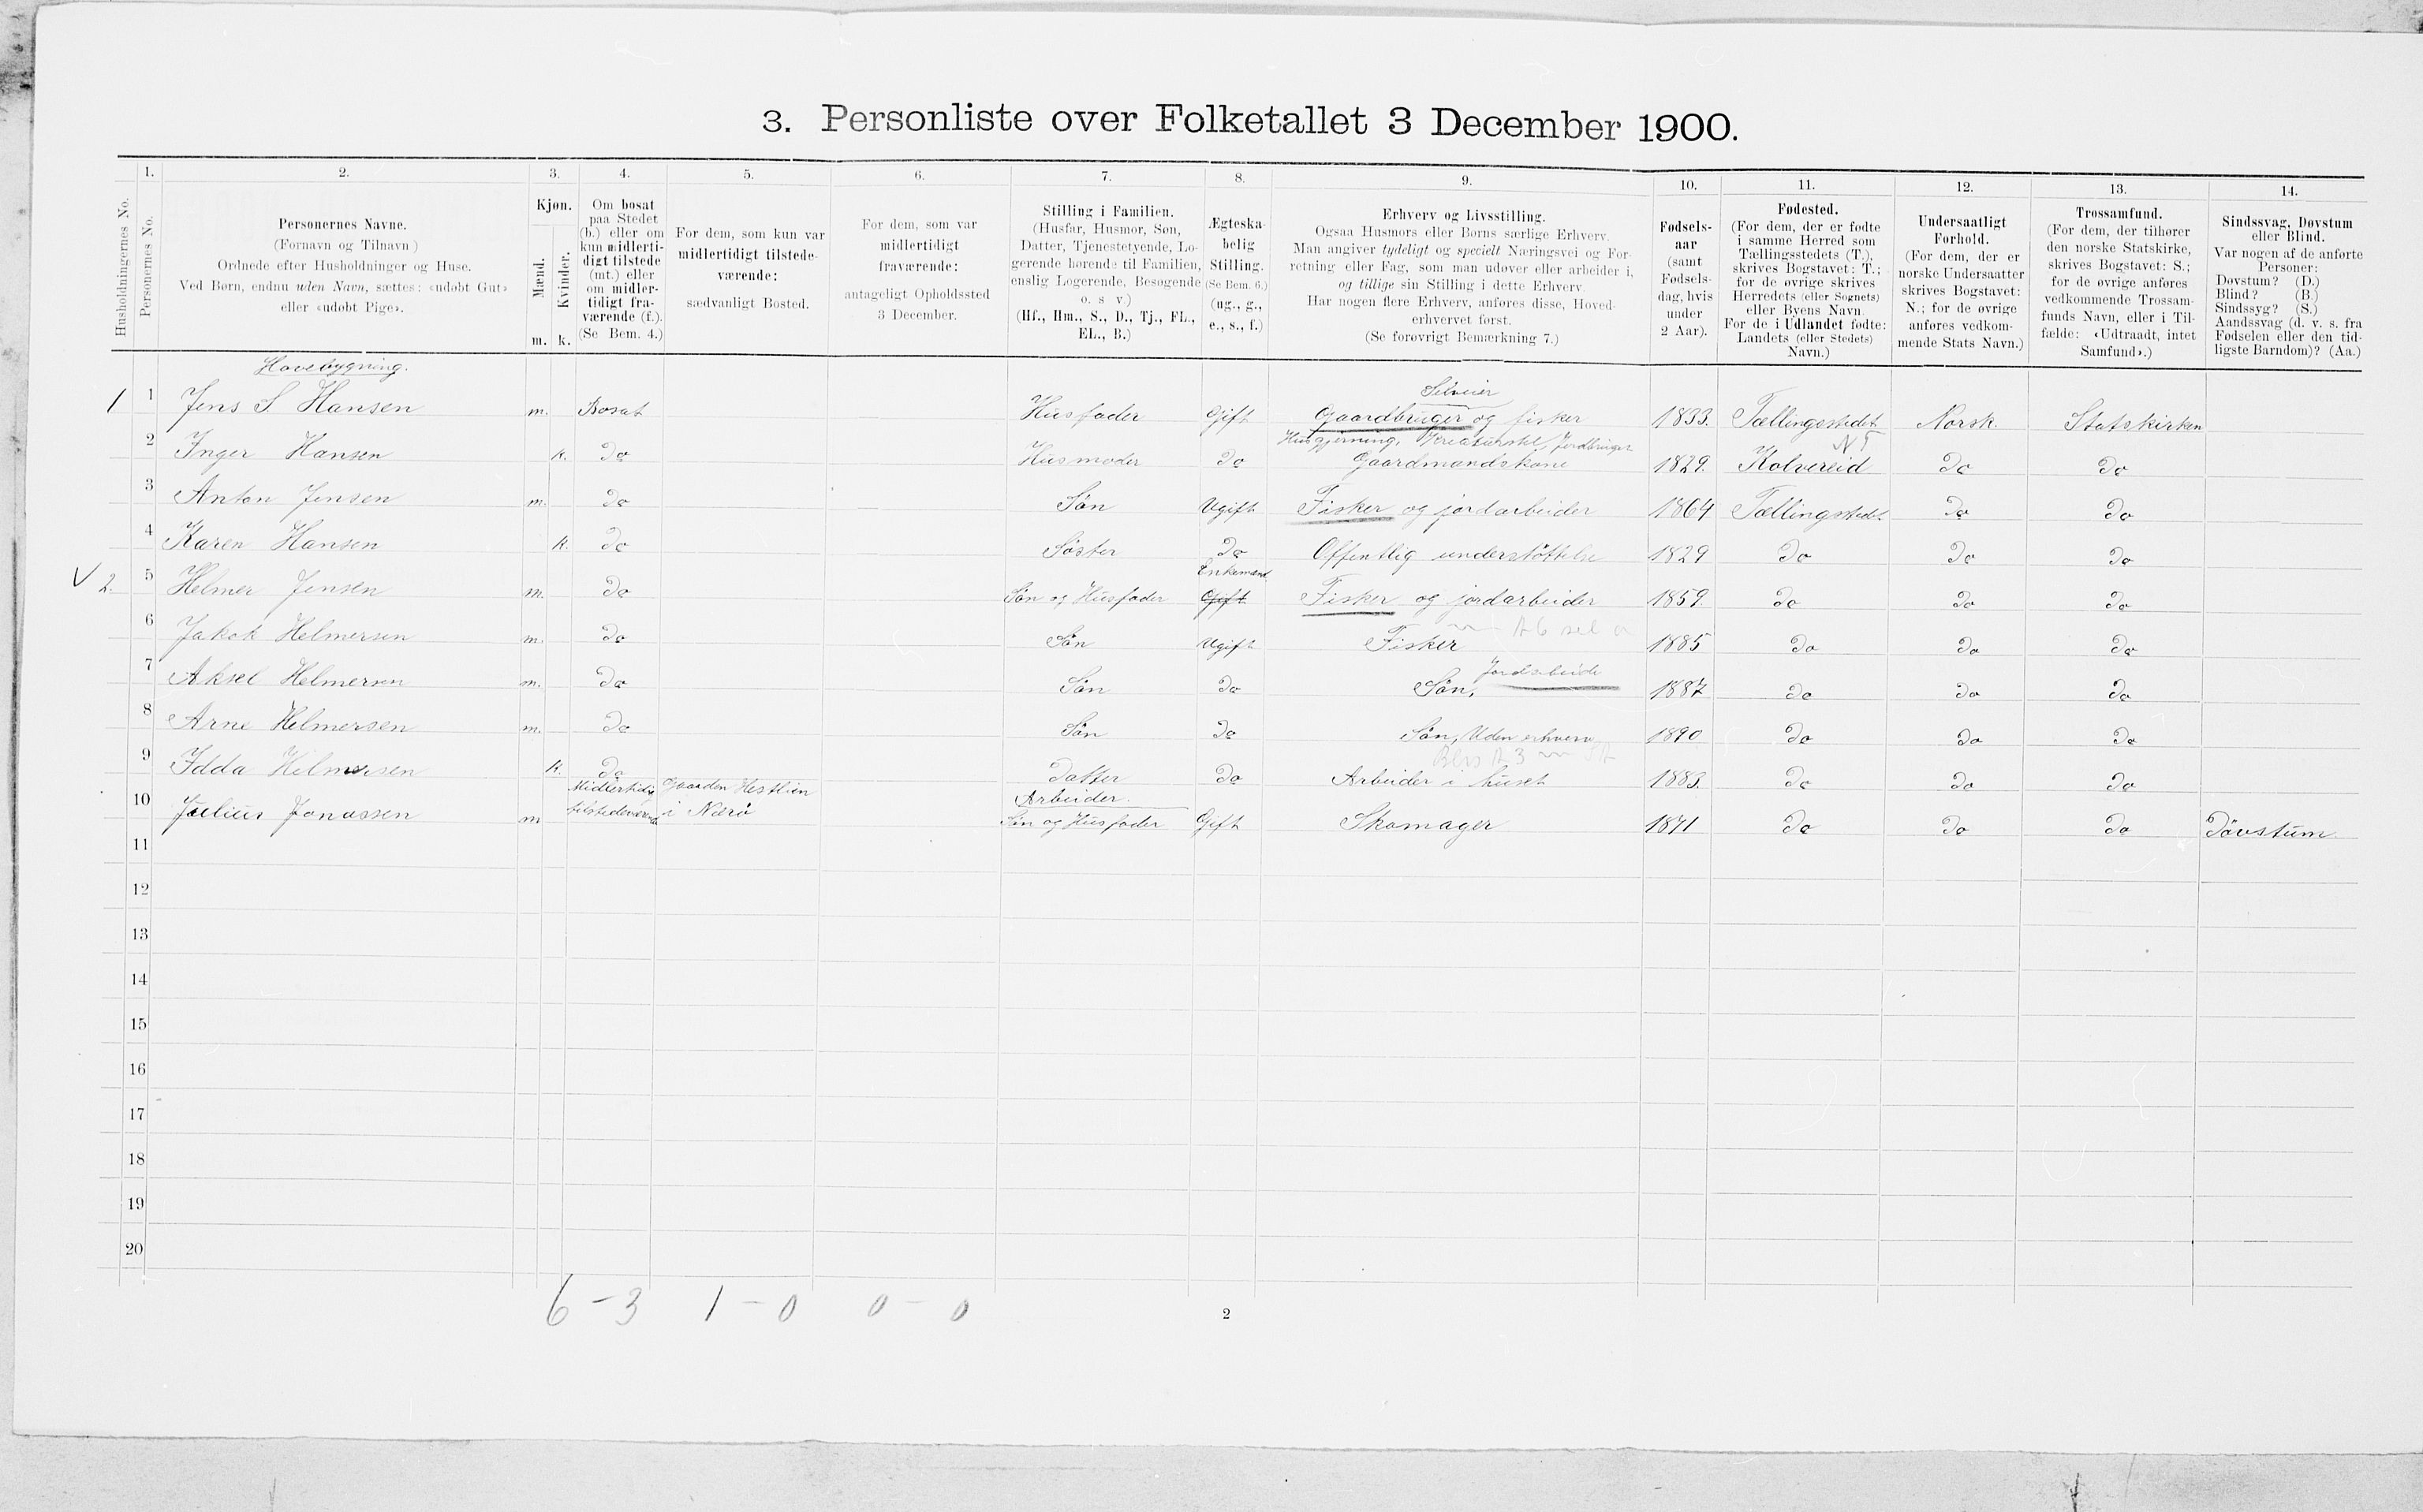 3. Personliste over Folketallet 3 December 1900.
1. 2. 3. 4. 5. 6. 7. 8. 9. 10. 11. 12. 13. 14.
Husholdningernes No.
Personernes No.
Personernes Navne.
(Fornavn og Tilnavn)
Ordnede efter Husholdninger og Huse.
Ved Børn, endnu uden Navn, sættes: «udøbt Gut»
eller «udøbt Pige».
Kjøn.
Mænd.
Kvinder.
m. k.
Om bosat
paa Stedet
(b.) eller om
kun midlerti-
digt tilstede
(mt.) eller
om midler-
tidigt fra-
værende (f.).
(Se Bem. 4.)
For dem, som kun var
midlertidigt tilstede-
værende:
sædvanligt Bosted.
For dem, som var
midlertidigt
fraværende:
antageligt Opholdssted
3 December.
Stilling i Familien.
(Husfar, Husmor, Søn,
Datter, Tjenestetyende, Lo-
gerende hørende til Familien,
enslig Logerende, Besøgende
o. s v.)
(Hf., Hm., S., D., Tj., FL.,
EL., B.)
Ægteska-
belig
Stilling.
(Se Bem. 6.)
(ug., g.,
e., s., f.)
Erhverv og Livsstilling.
Ogsaa Husmors eller Børns særlige Erhverv.
Man angiver tydeligt og specielt Næringsvei og For-
retning eller Fag, som man udøver eller arbeider i,
og tillige sin Stilling i dette Erhverv.
Har nogen flere Erhverv, anføres disse, Hoved-
erhvervet først.
(Se forøvrigt Bemærkning 7.)
Fødsels-
aar
(samt
Fødsels-
dag, hvis
under
2 Aar).
Fødested.
(For dem, der er fødte
i samme Herred som
Tællingsstedets (T.),
skrives Bogstavet: T.;
for de øvrige skrives
Herredets (eller Sognets)
eller Byens Navn.
For de i Udlandet fødte:
Landets (eller Stedets)
Navn.)
Undersaatligt
Forhold.
(For dem, der er
norske Undersaatter
skrives Bogstavet:
N.; for de øvrige
anføres vedkom-
mende Stats Navn.)
Trossamfund.
(For dem, der tilhører
den norske Statskirke,
skrives Bogstavet: S.;
for de øvrige anføres
vedkommende Trossam-
funds Navn, eller i Til-
fælde: «Udtraadt, intet
Samfund».)
Sindssvag, Døvstum
eller Blind.
Var nogen af de anførte
Personer:
Døvstum? (D.)
Blind? (B.)
Sindssyg? (S.)
Aandssvag (d. v. s. fra
Fødselen eller den tid-
ligste Barndom)? (Aa.)
Hovebygning.
Selveier
1 1 Jens S Hansen m. Bosat Husfader Gift Gaardbruger og fisker 1833. Tællingsstedet Norsk. Statskirken
Husgjerning, Kreaturstel, jordbruger NT
2 Inger Hansen k. Do Husmoder Do Gaardmandskone 1829. Kolvereid Do Do
3 Anton Jensen m. Do Sön Ugift Fisker og jordarbeider 1864 Tællingstedet Do Do
4 Karen Hansen k. Do Söster Do Offentlig understöttelse 1829 Do Do Do
Enkemand
V 2. 5 Helmer Jensen m. Do Sön og Husfader Gift Fisker og jordarbeider 1859. Do Do Do
6 Jakob Helmersen m. Do Sön Ugift Fisker 1885 Do Do Do
Jordarbeide
7 Aksel Helmersen m. Do Sön Do Sön, 1887 Do Do Do
8 Arne Helmersen m. Do Sön Do Sön, Uden erhverv 1890 Do Do Do
9 Idda Helmersen k. Do Datter Do Arbeider i huset 1883. Do Do Do
Midlertidig Gaarden Hestlien Arbeider.
10 Julius Jonassen m tilstedeværende i Nærö Sön og Husfader Gift Skomager 1871 Do Do Do Dövstum
11
12
13
14
15
16
17
18
19
20
6 - 3 1 - 0 0 - 0
2